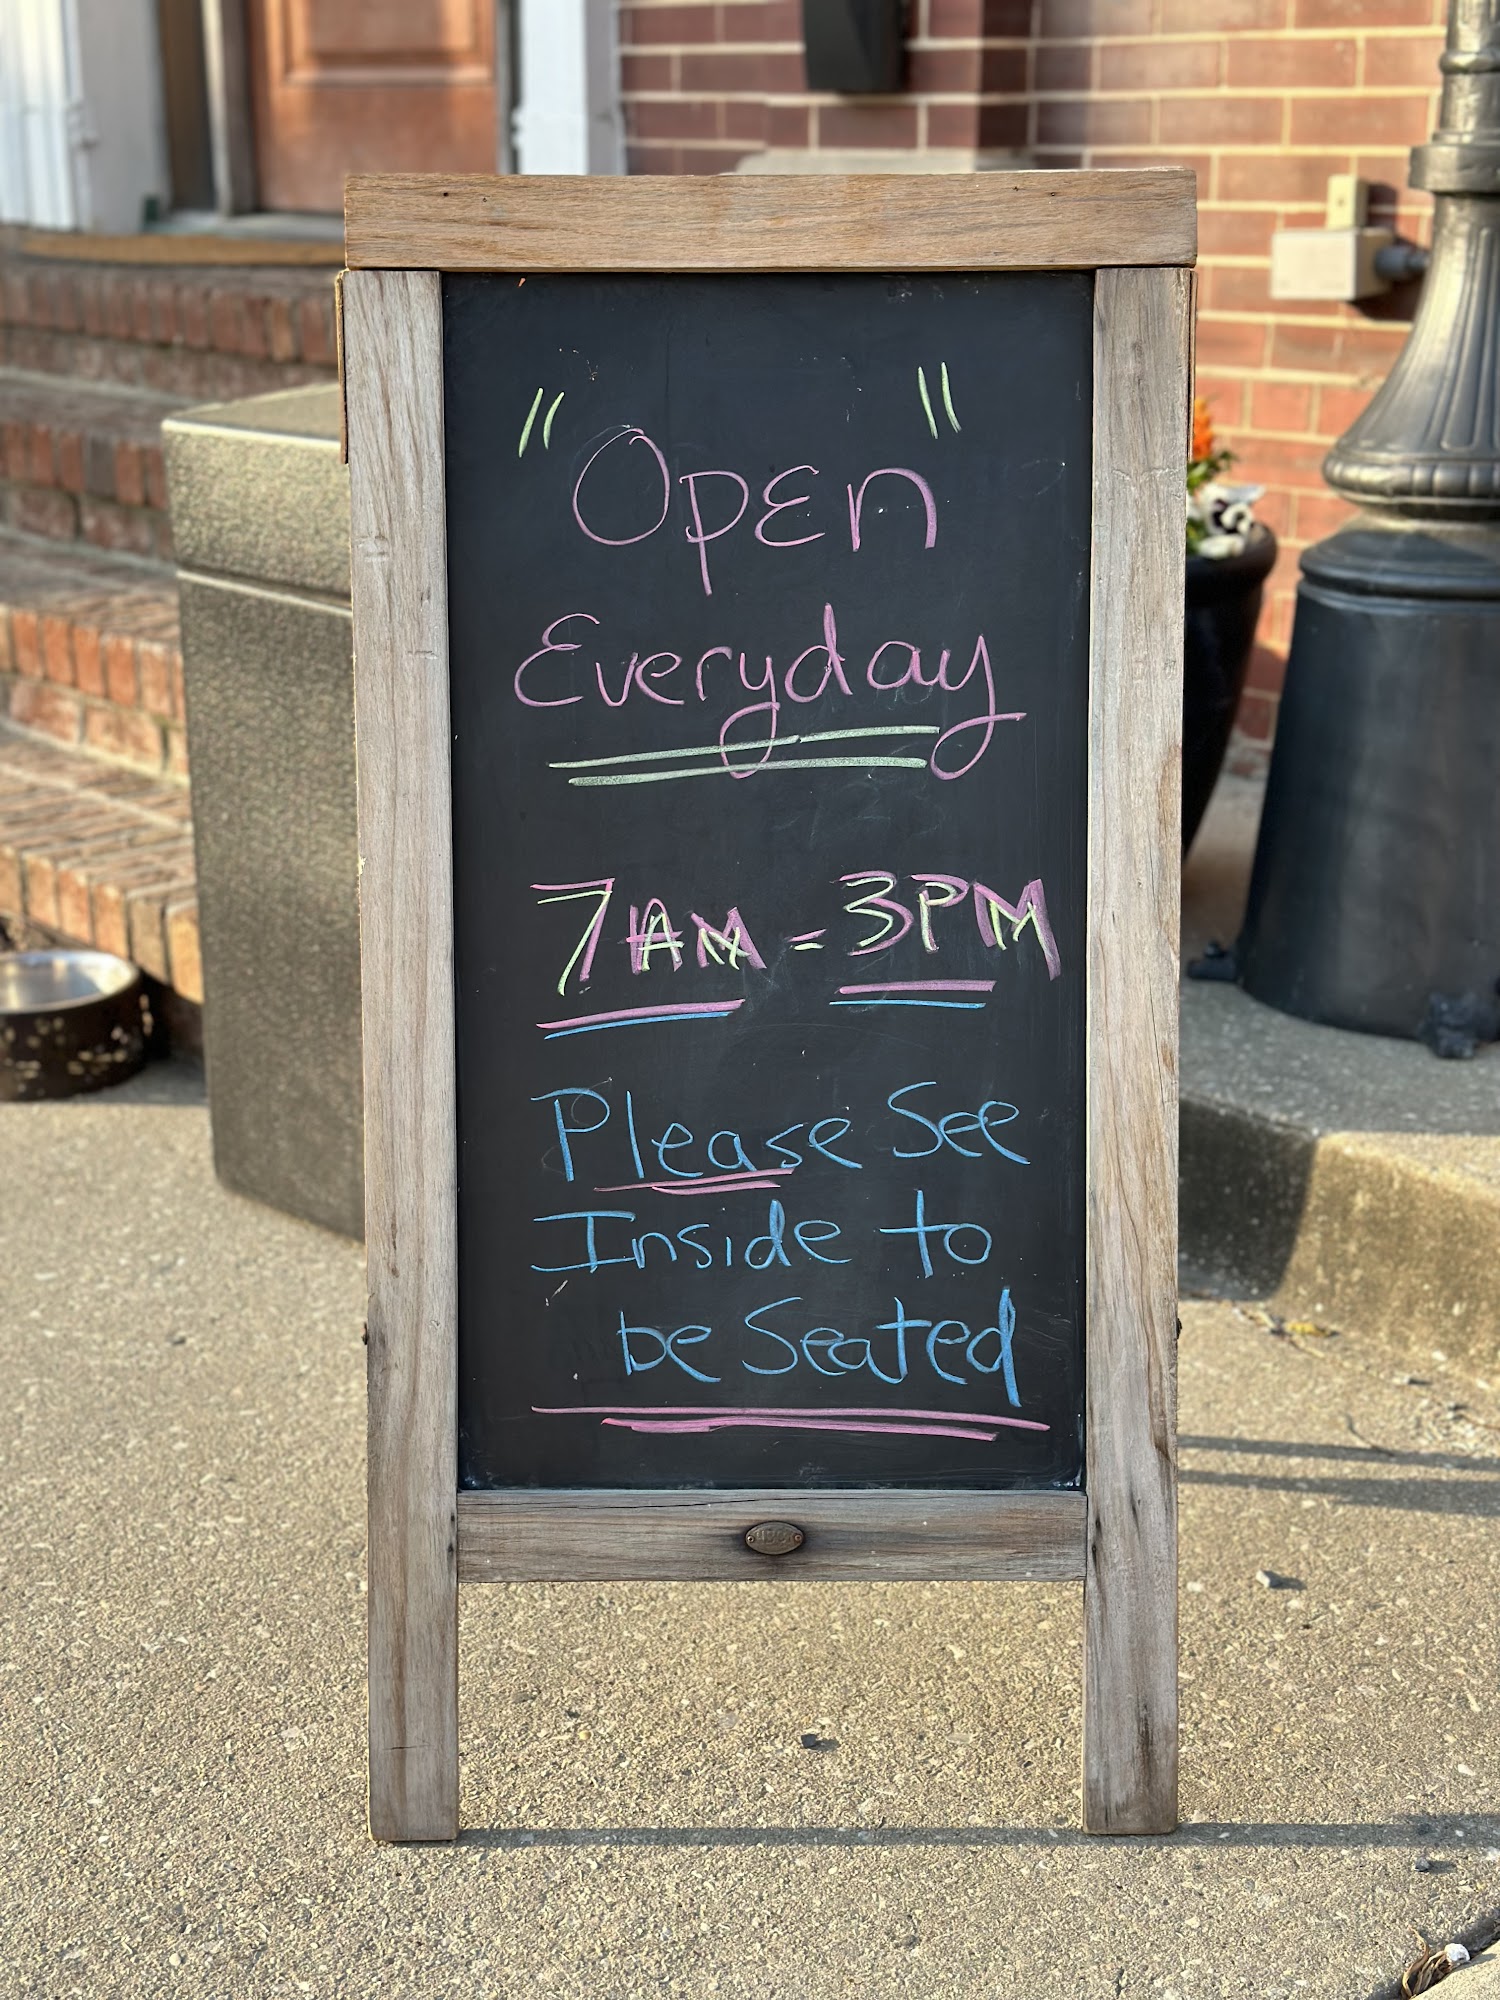 "Open"
Everyday
7AM - 3PM
Please See
Inside to
be Seated